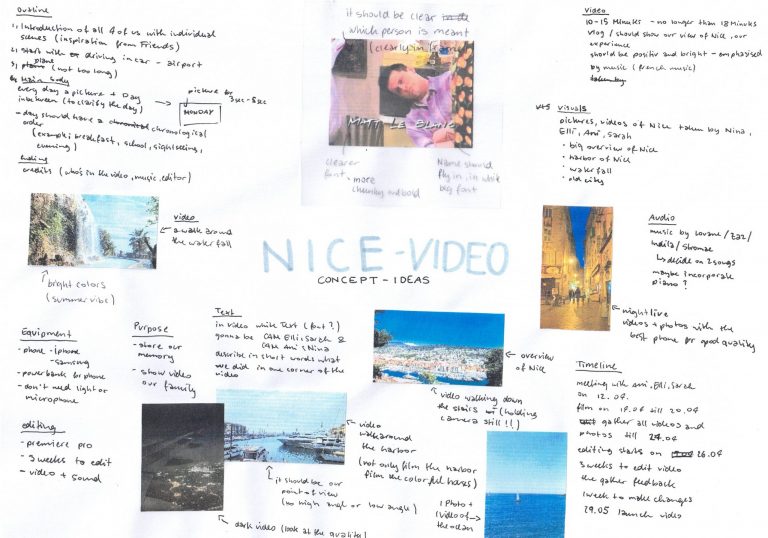 Outline
1, Introduction of all 4 of us with individual
scenes (inspiration from Friends)
2, start with driving in car - airport
plane
3, (not too long)
Main body
every day a picture + Day
inbetween (to clarify the day)
- day should have a chronological
order
(example: breakfast, school, sightseeing,
evening)
Ending
credits (who's in the video, music, editor)
picture
3sec-5sec
MONDAY
it should be clear
which person is meant
(clearly in frame)
MATT LE BLANC
clearer
font
more
chunky and bold
Name should
fly in, in white
big font
Video
10-15 Minutes - no longer than 18 Minutes
vlog / should show our view of Nice, our
experience
should be positiv and bright - emphasised
by music (french music)
visuals
pictures, videos of Nice taken by Nina,
Elli, Ami, Sarah
• big overview of Nice
• harbor of Nice
• waterfall
• old city
video
a walk around
the waterfall
bright colors
(summer vibe)
NICE-VIDEO
CONCEPT - IDEAS
Audio
music by Lovane / Zaz /
Indila / Stromae
decide on 2 songs
maybe incorporate
piano?
nightlive
videos + photos with the
best phone for good quality
Equipment
- phone - Iphone
- Samsung
- powerbank for phone
- don't need light or
microphone
Purpose
- store our
memory
- show video
our family
Text
in video white Text (font?)
gonna be CAM Elli & Sarah &
CAM Ami & Nina
describe in short words what
we did in one corner of the
video
overview
of Nice
video walking down
the stairs (holding
camera still!!)
Timeline
meeting with Ami, Elli, Sarah
on 12.04
film on 18.04 till 20.04
gather all videos and
photos till 24.04
editing starts on 26.04
3 weeks to edit video
the gather feedback
1 week to make changes
29.05 launch video
editing
- premiere pro
- 3 weeks to edit
- video + sound
video
walk around
the harbor
(not only film the harbor
film the colorful houses)
it should be our
point of view
(no high angle or low angle)
dark video (look at the quality)
1 Photo +
1 video of
the ocean